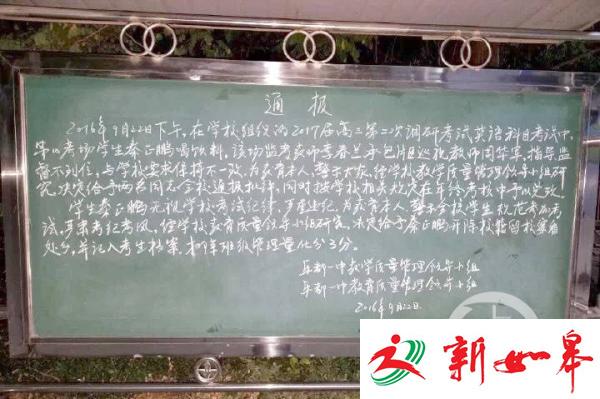 通报
2016年9月22日下午,在学校组织的2017届高三第二次调研考试英语科目考试中,
考场学生秦正鹏喝饮料,该场监考教师李春兰承包片区巡视教师周华军,指导监
督不到位,与学校要求保持不一致,为教育本人,警示大家,经学校教学质量管理领导小组研
究,决定给予两名同志全校通报批评,同时按学校相关规定在年终考核中予以兑改。
学生秦正鹏无视学校考试纪律,严重违纪,为教育本人,警示全校学生,规范参加考
试,严肃考纪考风,经学校教育质量领导小组研究,决定给予秦正鹏开除学籍留校察看
处分,并记入考生档案,扣年班级管理量化分3分。
一中教学质量管理领导小组
一中教育质量管理领导小组
2016年9月22日
新如皋